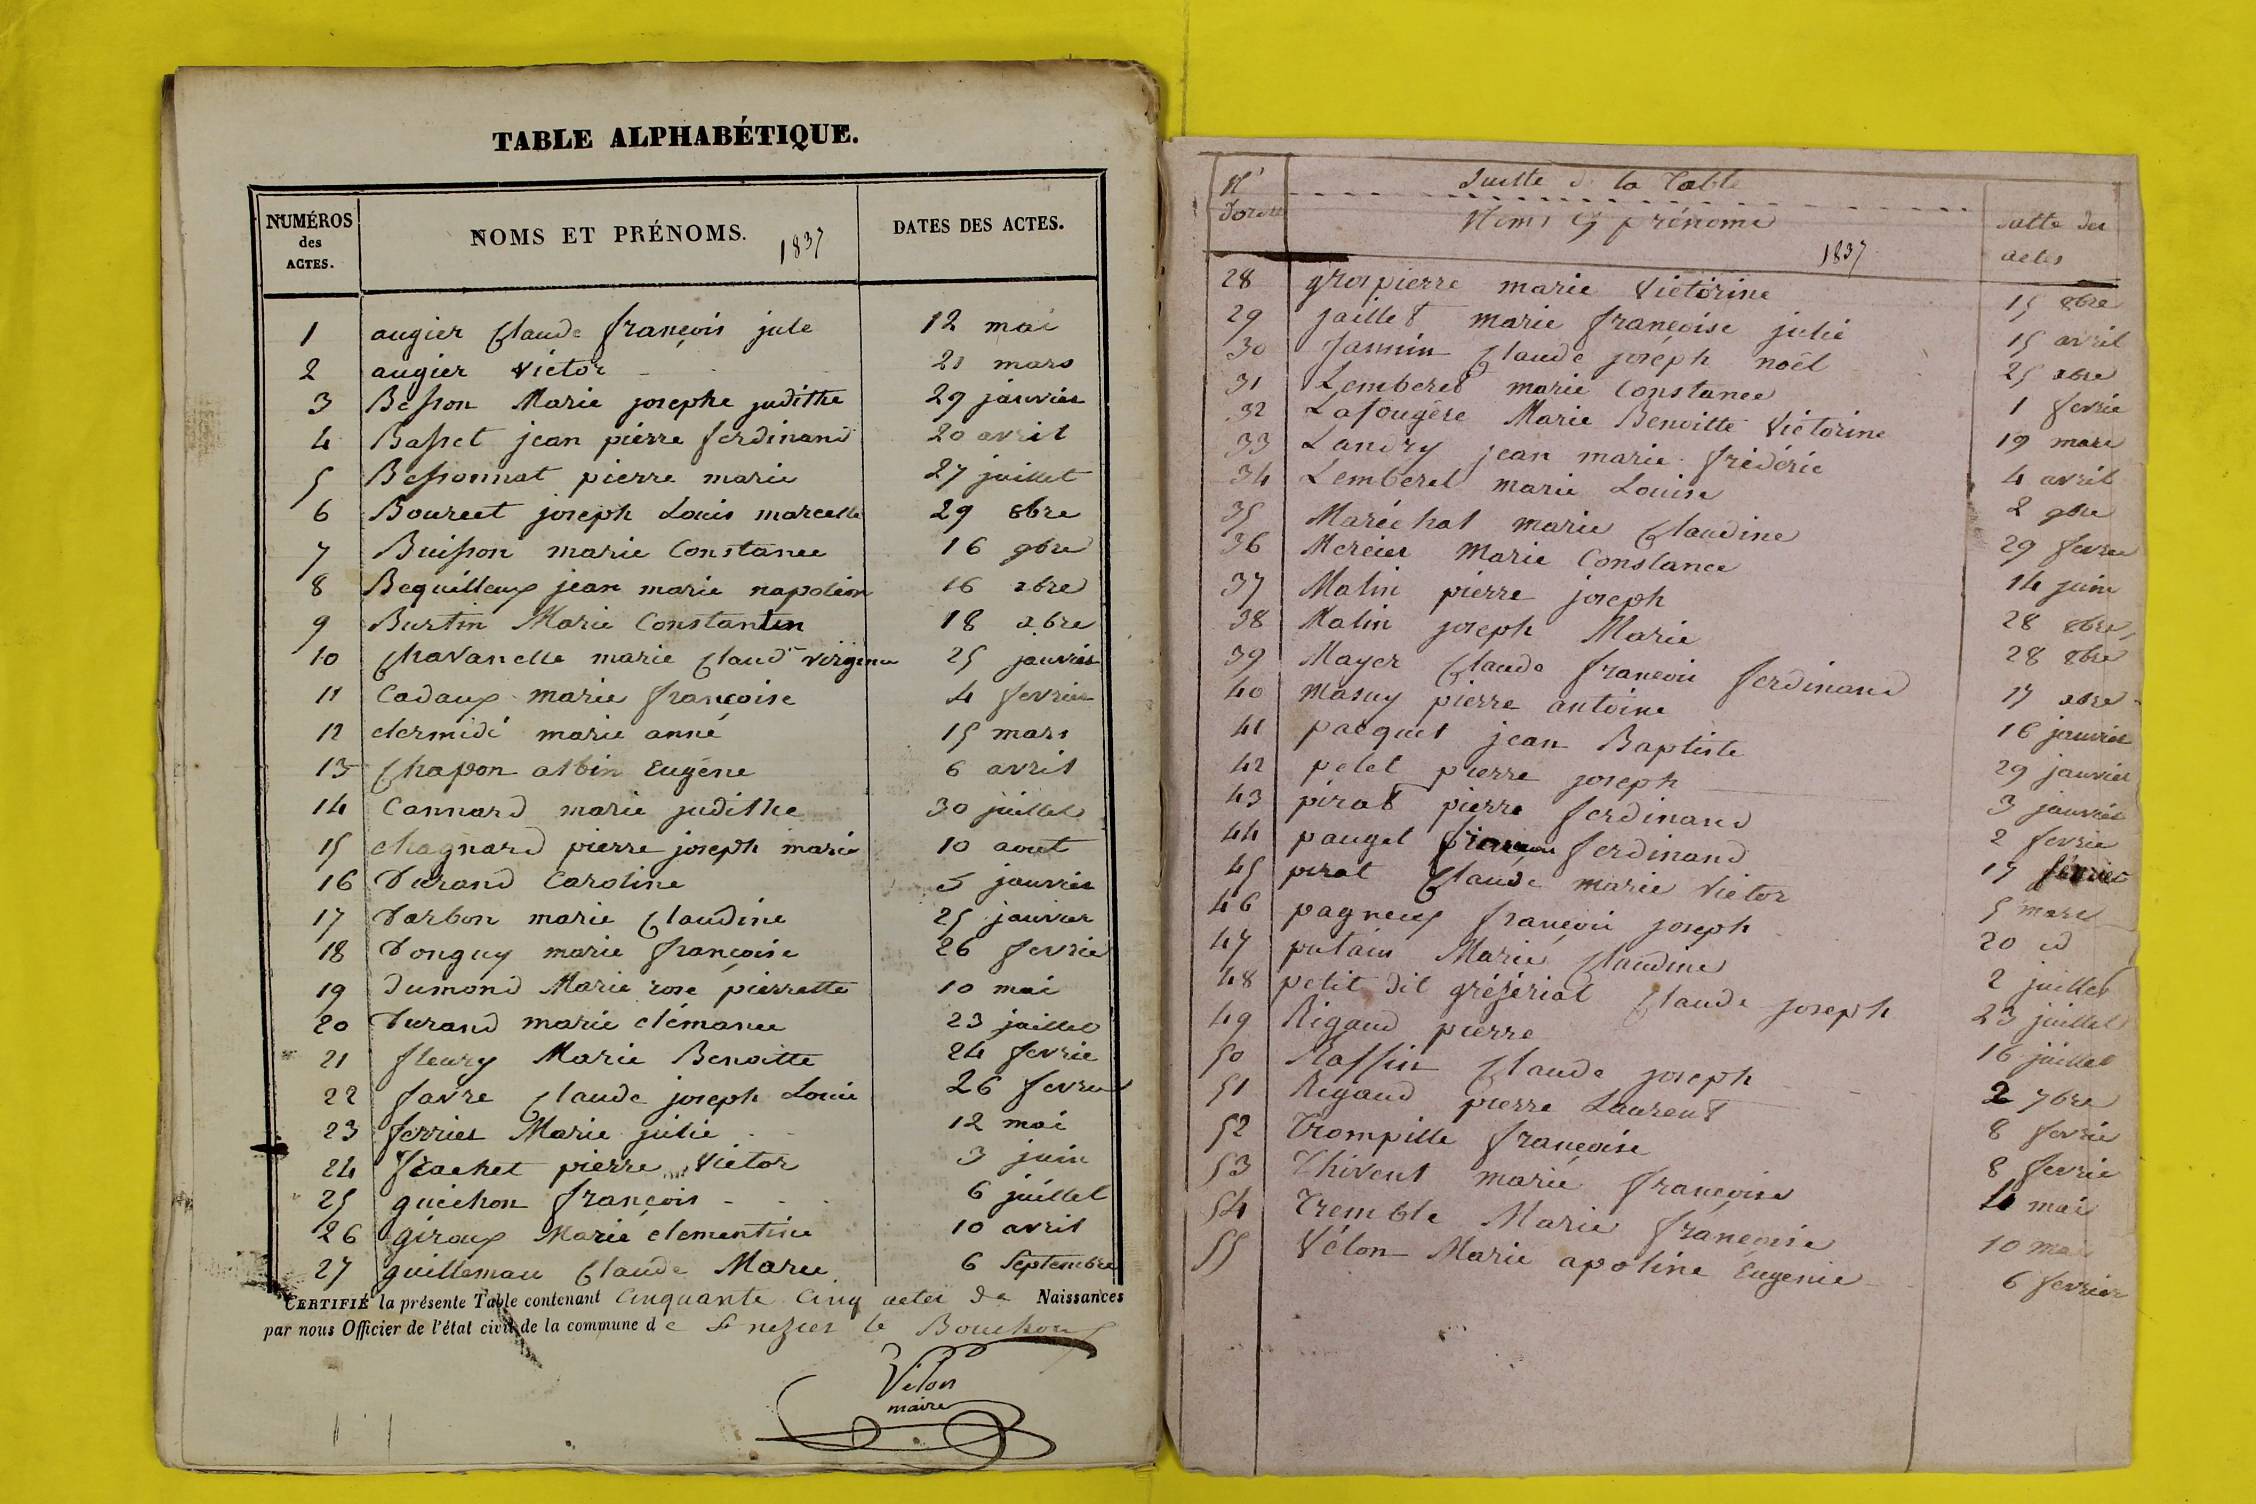 TABLE ALPHABÉTIQUE.
NUMÉROS des ACTES. NOMS ET PRÉNOMS. 1837 DATES DES ACTES.
1 augier Claude françois jule 12 mai
2 augier Victor 21 mars
3 Besson Marie josephe judithe 29 janvier
4 Basset jean pierre ferdinand 20 avril
5 Bessonnat pierre marie 27 juillet
6 Bourcet joseph Louis marcelle 29 8bre
7 Buisson marie Constance 16 9bre
8 Bequilleux jean marie napoléon 16 xbre
9 Burtin Marie Constantin 18 xbre
10 Chavanelle marie Claud virginie 25 janvier
11 Cadaux marie françoise 4 fevrier
12 clermidi marie anne 15 mars
13 Chapon albin Eugène 6 avril
14 Cannard marie judithe 30 juillet
15 chagnard pierre joseph marie 10 aout
16 Durand Caroline 5 janvier
17 Darbon marie Claudine 25 janvier
18 Donguy marie françoise 26 fevrie
19 Dumond Marie rose pierrette 10 mai
20 Durand marie clémance 23 juillet
21 fleury Marie Benoitte 24 fevrie
22 favre Claude joseph Louis 26 fevrie
23 ferrier Marie julie 12 mai
24 frachet pierre Victor 3 juin
25 guichon françois 6 juillet
26 giroux Marie clementine 10 avril
27 guillemau Claude Marie 6 Septembre
CERTIFIÉ la présente Table contenant Cinquante Cinq actes de Naissances
par nous Officier de l'état civil de la commune de St nizier le Bouchoux
Vélon
maire
N° Suitte de la Table
Noms et prénoms 1837 datte des
actes
28 grospierre marie Victorine 15 8bre
29 jaillet marie françoise julie 15 avril
30 Jannin Claude joseph noël 25 xbre
31 Lemberet marie Constance 1 fevrie
32 Lafougère Marie Benoitte Victorine 19 mars
33 Landry jean marie frédéric 4 avril
34 Lemberet marie Louise 2 9bre
35 Maréchal marie Claudine 29 fevrie
36 Mercier Marie Constance 14 juin
37 Malin pierre joseph 28 8bre
38 Malin joseph Marie 28 8bre
39 Mayer Claude françois ferdinand 17 xbre
40 masuy pierre antoine 16 janvier
41 pacquet jean Baptiste 29 janvier
42 petet pierre joseph 3 janvier
43 pirat pierre ferdinand 2 fevrie
44 pauget ferdinand 17 février
45 pirat Claude marie Victor 5 mars
46 pagneux françois joseph 20 id
47 putain Marie Claudine 2 juillet
48 petit dit grézériat Claude joseph 23 juillet
49 Rigaud pierre 16 juillet
50 Raffin Claude joseph 2 7bre
51 Rigaud pierre Laurent 8 fevrie
52 Trompille françoise 8 fevrie
53 Thivent marie françoise 4 mai
54 Tremble Marie françoise 10 mai
55 Vélon Marie apoline Eugenie 6 fevrier